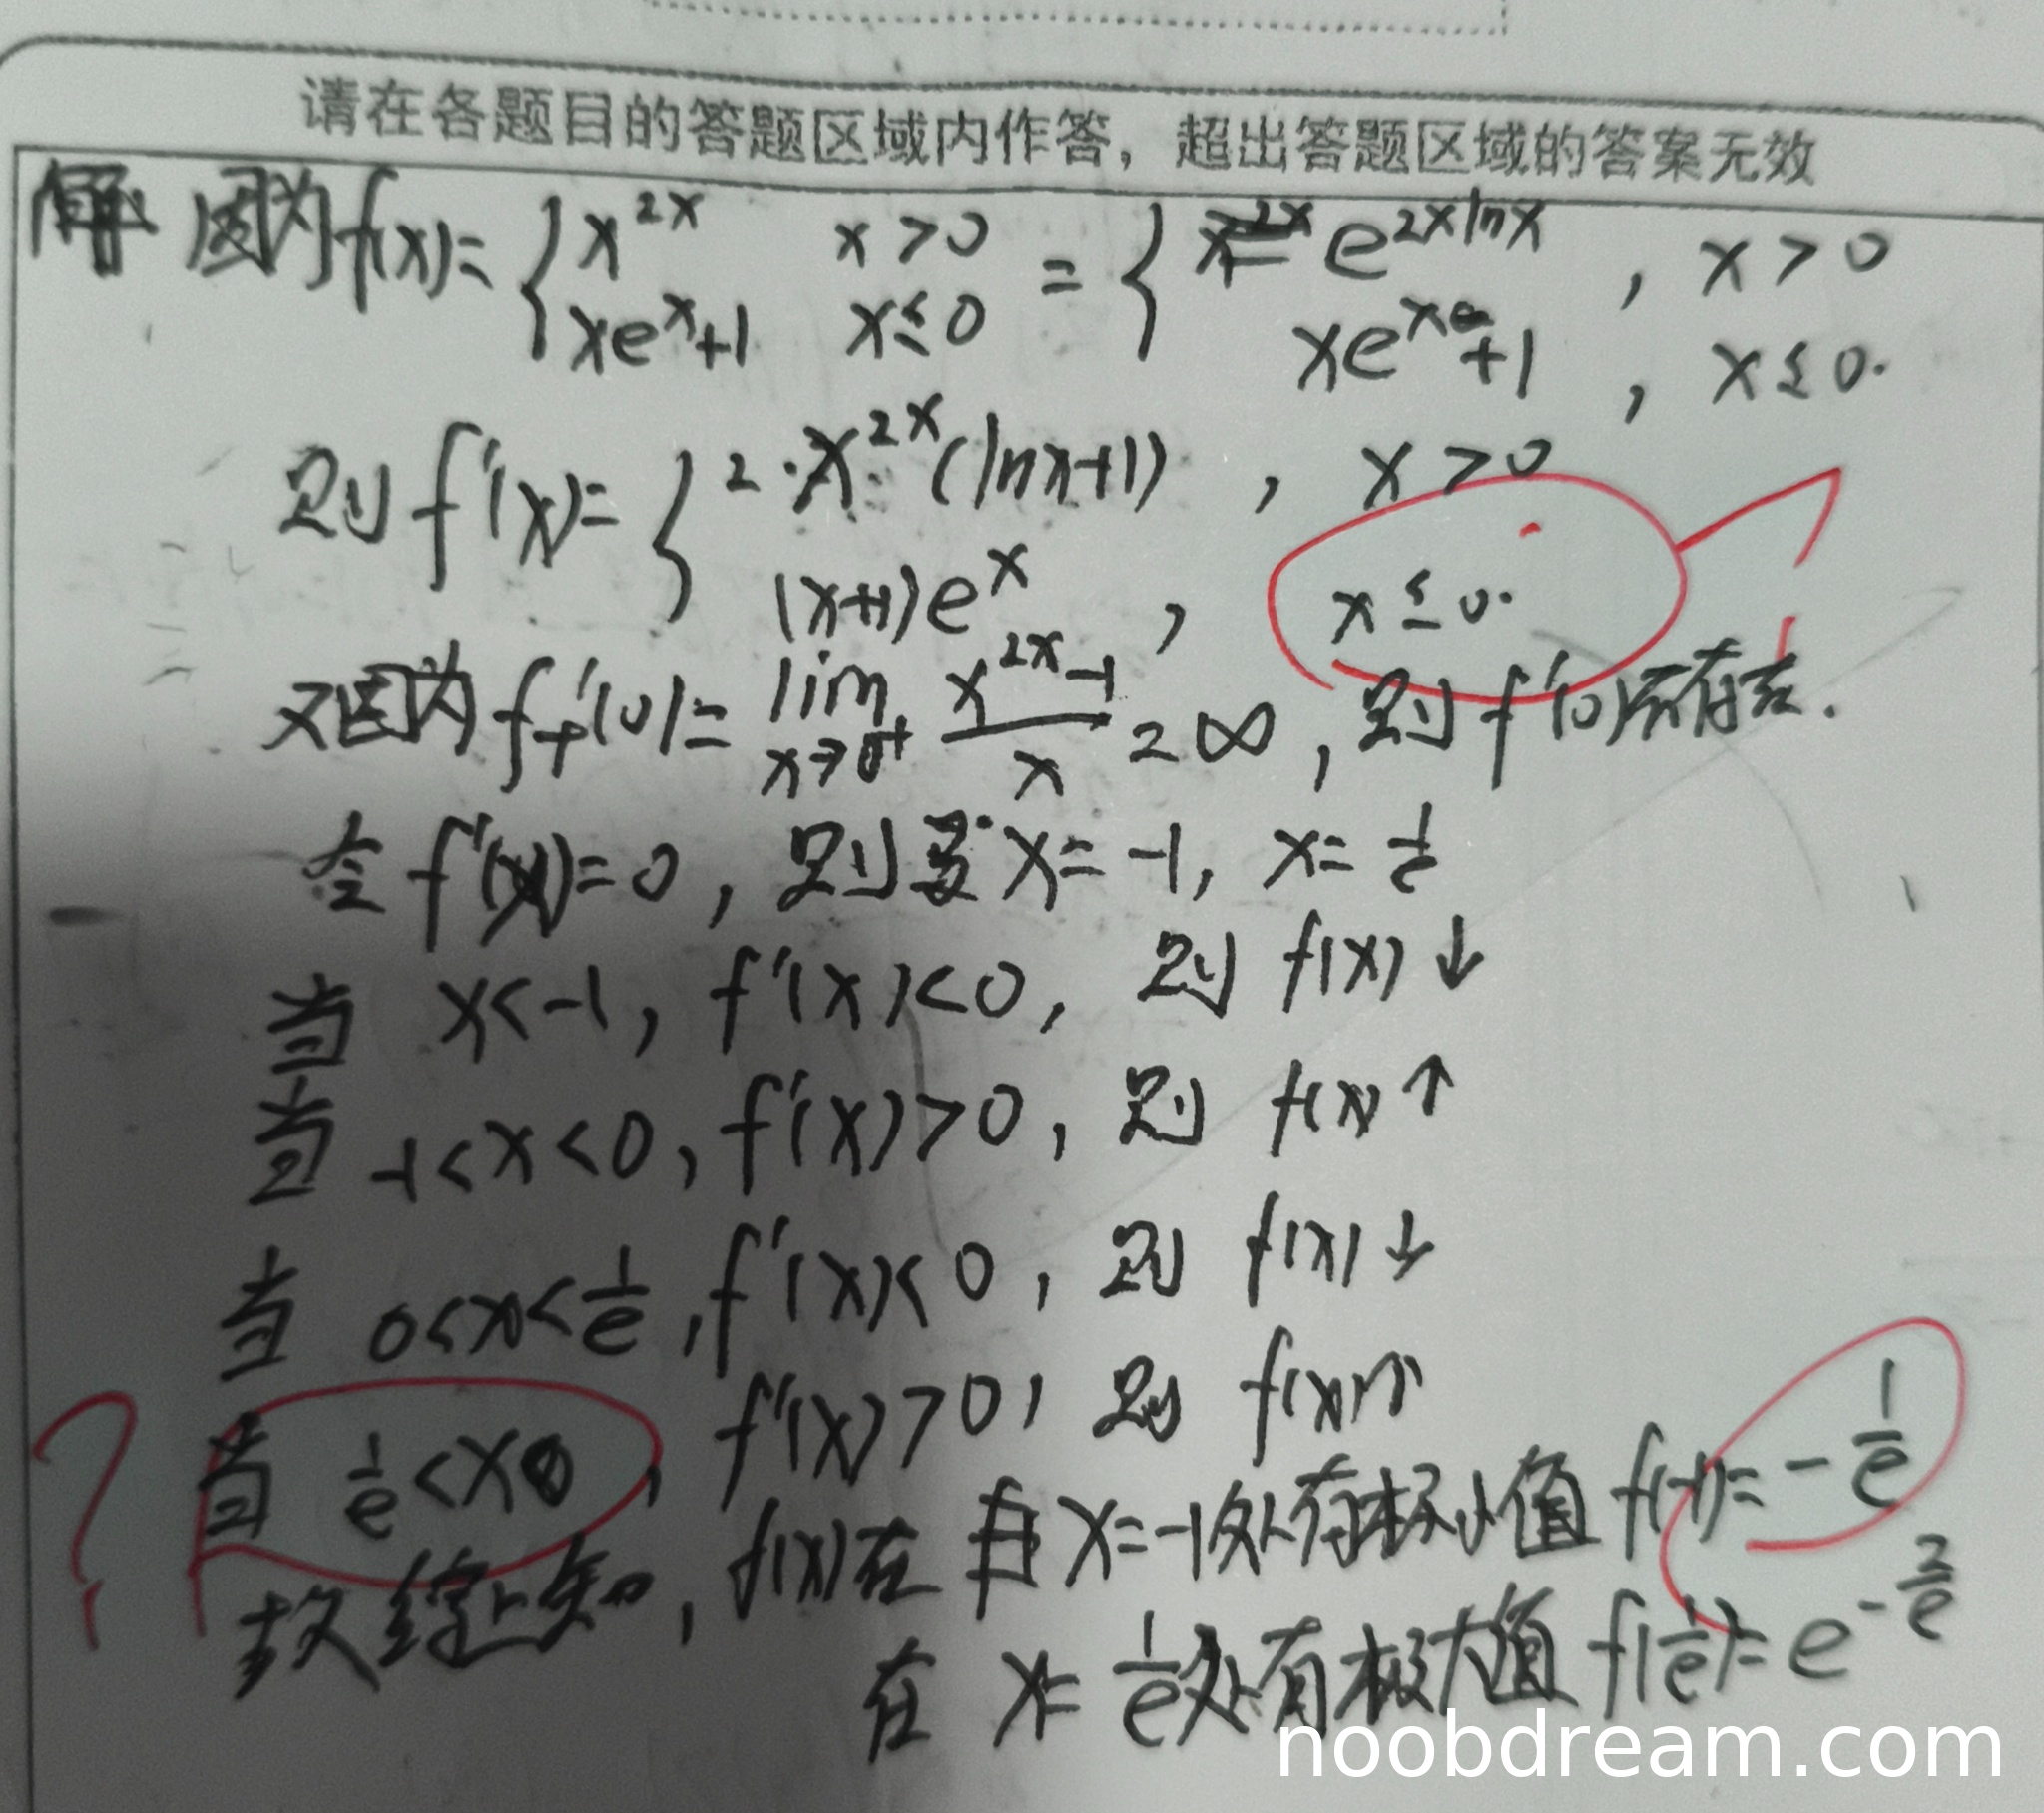 请在各题目的答题区域内作答，超出答题区域的答案无效
解 因为f(x)={x^{2x} x>0 = {e^{2x lnx}, x>0
xe^x+1 x≤0 xe^x+1, x≤0.
则 f'(x)={2·x^{2x}(lnx+1), x>0
(x+1)e^x, x≤0.
又因为 f_+'(0)= lim_{x→0^+} \frac{x^{2x}-1}{x} = ∞, 则 f'(0)不存在.
令 f'(x)=0, 则 x=-1, x=\frac{1}{e}
当 x<-1, f'(x)<0, 则 f(x)↓
当 -1<x<0, f'(x)>0, 则 f(x)↑
当 0<x<\frac{1}{e}, f'(x)<0, 则 f(x)↓
? 当 \frac{1}{e}<x, f'(x)>0, 则 f(x)↑
故综上知, f(x)在 x=-1处有极小值 f(-1)=-\frac{1}{e}
在 x=\frac{1}{e}处有极大值 f(\frac{1}{e})=e^{-\frac{2}{e}}
noobdream.com